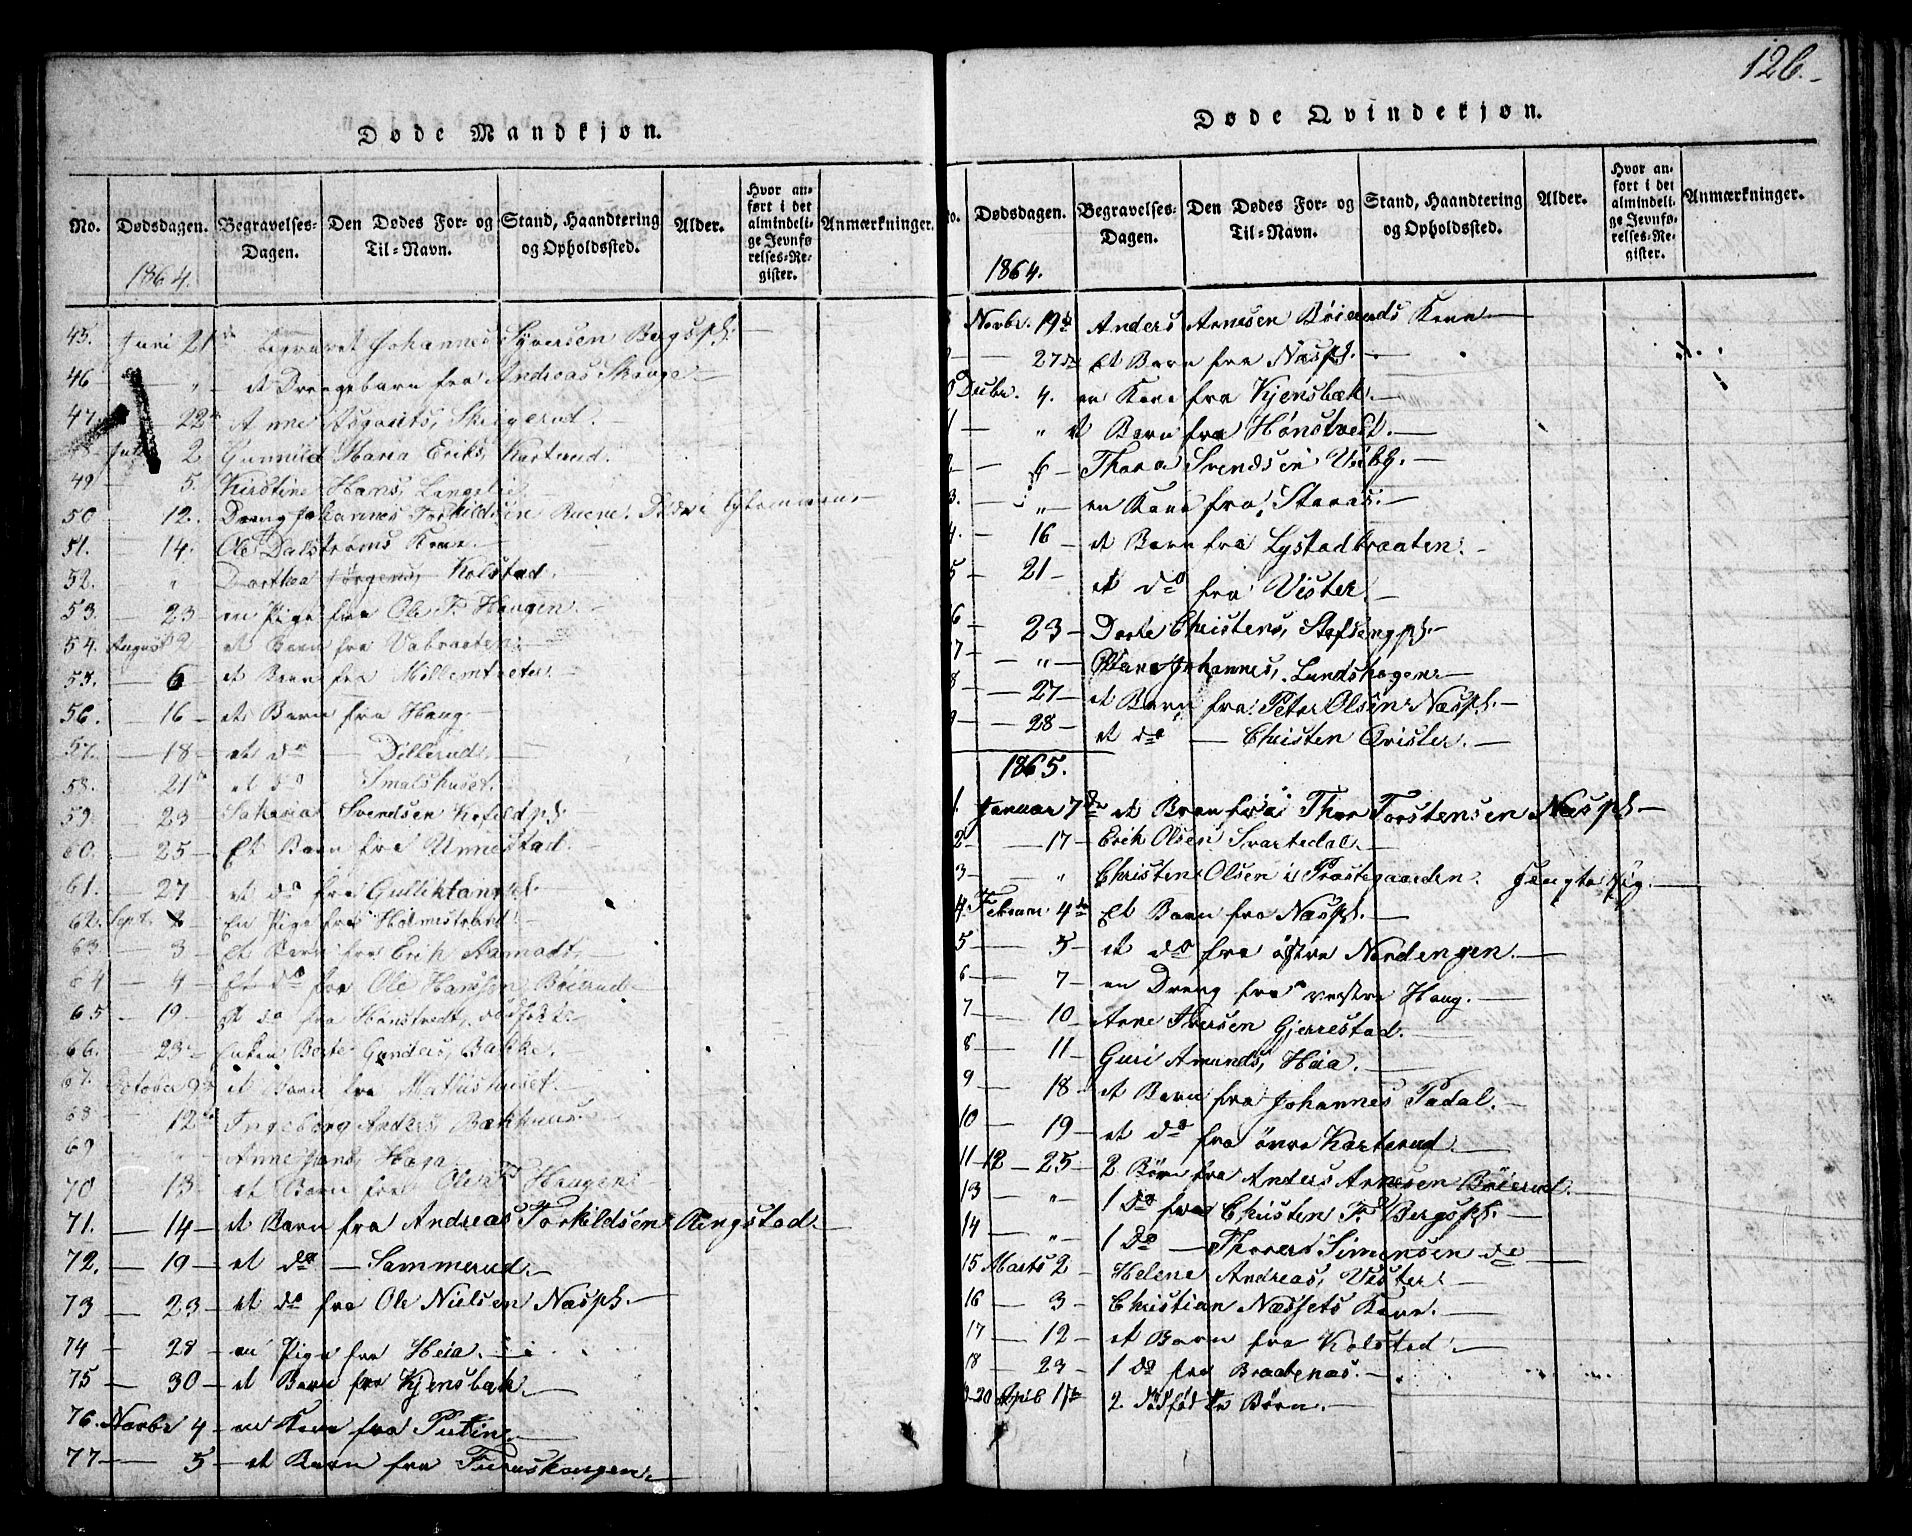 126.
Døde Mandkjøn.
No. Dødsdagen. Begravelses-Dagen. Den Dødes For- og Til-Navn. Stand, Haandtering og Opholdssted. Alder. Hvor anført i det almindelige Jevnførelses-Register. Anmærkninger.
1864.
45. Juni 21de begravet Johannes Syversen Bergspl.
46 — " et Drengebarn fra Andreas Skouge —
47 22de Anne Asgauts,
Juli 2 Gunnild Maria Eriks, Kartrud.
49 — 5. Kirstine Hans, Langelie.
50 — 12. Dreng Johannes Torkildsen Buene. Døde i
51. — 14. Ole Dalstrøms Kone. —
52. " Dorthea Jørgens, Kolstad. —
53. — 23 en Pige fra Ole P. Haugen. —
54. August 2 et Barn fra Vabraaten. —
55. — 6 et Barn fra
56. — 16 — et Barn fra Haug —
57. — 18 — et do — Dillerud. —
58. 21de et do Smalshuset. —
59. 23 — Svendsen
60. — 25 — Et Barn fra Unnestad. —
61. — 27 et do fra
62. Sept. 2 En Pige fra Holmestrand.
63 — 3 — Et Barn fra Erik Aamodt. —
64 — 4 — Et do fra Ole Hansen Böierud —
65 — 19 — Et do fra Hønstvedt, dødfødt —
66. — 23 — Enken Berte Gunders, Bakke.
67. October 9de et Barn fra Mathishuset. —
68 — 12te Ingeborg Anders, Bakkehuus
69 " Anne Hans, Haga
70 — 13 — et Barn fra Ole P. Haugen
71. — 14 — et Barn fra Andreas Torkildsen Ringstad. —
72. — 19 — et do — Sammerud. —
73 — 23 — et do fra Ole Nielsen Næspl. —
74 — 28 — en Pige fra Heia. —
75 — 30 — et Barn fra Kjensbæk. —
76. Novbr 4 — en Kone fra Putten. —
77 — 5 — et Barn fra Furuskougen. —
Døde Qvindekjøn.
No. Dødsdagen. Begravelses-Dagen. Den Dødes For- og Til-Navn. Stand, Haandtering og Opholdssted. Alder. Hvor anført i det almindelige Jevnførelses-Register. Anmærkninger.
1864.
Novbr. 19de Anders Arnesen Böieruds Kone —
— 27de Et Barn fra Næspl. —
Decbr. 4. en Kone fra Kjensbæk. —
" et Barn fra Hønstvedt. —
— 6 — Thora Svendsen —
— " — en Kone fra Staras. —
— 16 et Barn fra Lystadbraaten. —
5 — 21 — et do fra Vister. —
6 — 23 — Dorte Christens, Stefsengpl. —
7 — " — Johannes, Lundshagen —
8 — 27 — et Barn fra Peter Olsen Næspl. —
9 — 28 — et do — Christen Qvister. —
1865.
1 Januar 7de et Barn fra Thor Torstensen Næspl. —
2 — 17 — Erik Olsen Svartedal. —
3 — " Christen Olsen i Præstegaarden.
4. Februar 4de Et Barn fra Næspl. —
5 — 5 — et do fra østre Nordengen. —
6 — 7 — en Dreng fra vestre Haug. —
7 — 10 — Arne Iversen Gjerrestad. —
8 — 11 — Guri Amunds, Heia. —
9 — 18 — et Barn fra Johannes Tadal. —
10 — 19 — et do fra övre Karterud. —
11-12 — 25 — 2 Børn fra Anders Arnesen Böierud. —
13 — " — 1 do fra Christen P. Bergspl. —
14 — " — 1 Do — Thorer Simensen do —
15 Marts 2 — Helene Andreas, Vister. —
16 — 3 — Christian Næssets Kone. —
17 — 12 — et Barn fra Kolstad. —
18 — 23 — 1 do fra Braatenas. —
19-20 April 17de 2 dødfødte Børn. —